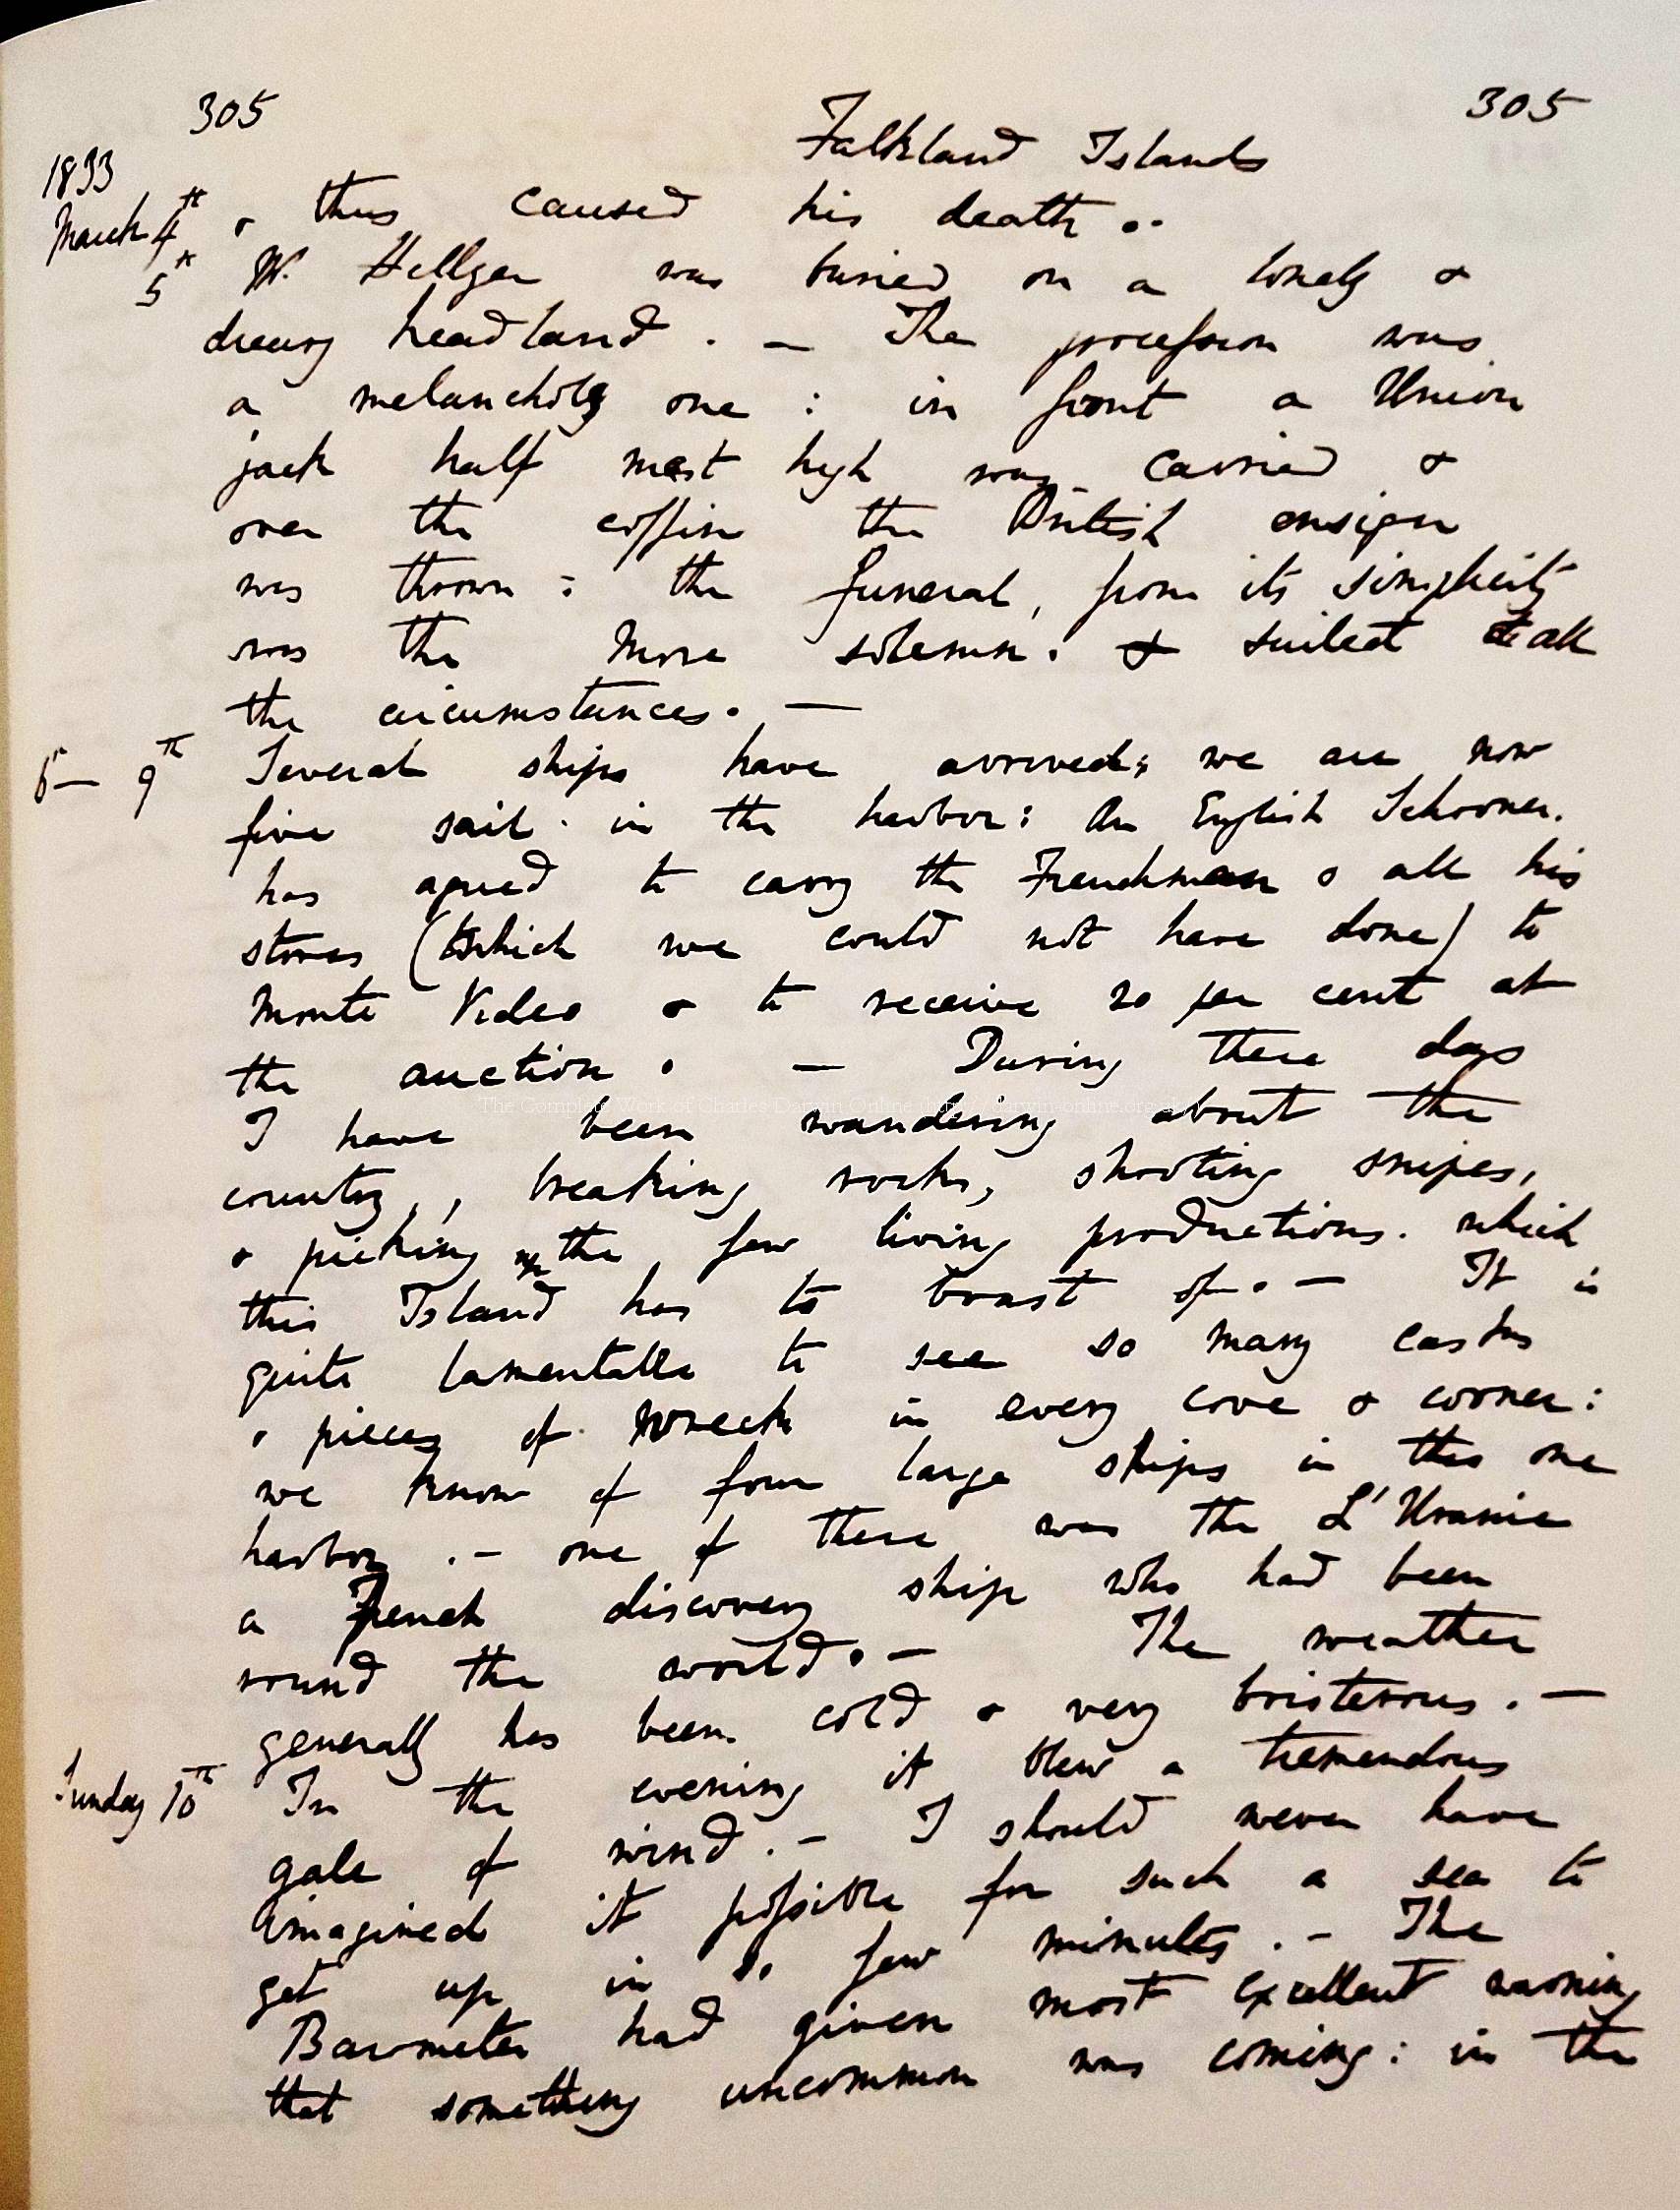 305 Falkland Islands 305
1833
March 4th & thus caused his death..
5th Mr. Hellyer was buried on a lonely &
dreary headland. — The procession was
a melancholy one: in front a Union
jack half mast high was carried &
over the coffin the British ensign
was thrown: the funeral, from its simplicity
was the more solemn. & suited to all
the circumstances. —
6 — 9th Several ships have arrived; we are now
five sail. in the harbor: An English Schooner.
has agreed to carry the Frenchman & all his
stores (which we could not have done) to
Monte Video & to receive 20 per cent at
the auction. — During these days
I have been wandering about the
country, breaking rocks, shooting snipes,
& picking up the few living productions. which
this Island has to boast of. — It is
quite lamentable to see so many casks
& pieces of wreck in every cove & corner:
we know of four large ships in this one
harbor. — one of these was the L'Uranie
a French discovery ship who had been
round the world. — The weather
generally has been cold & very boisterous. —
Sunday 10th In the evening it blew a tremendous
gale of wind. — I should never have
imagined it possible for such a sea to
get up in a few minutes. — The
Barometer had given most excellent warning
that something uncommon was coming: in the